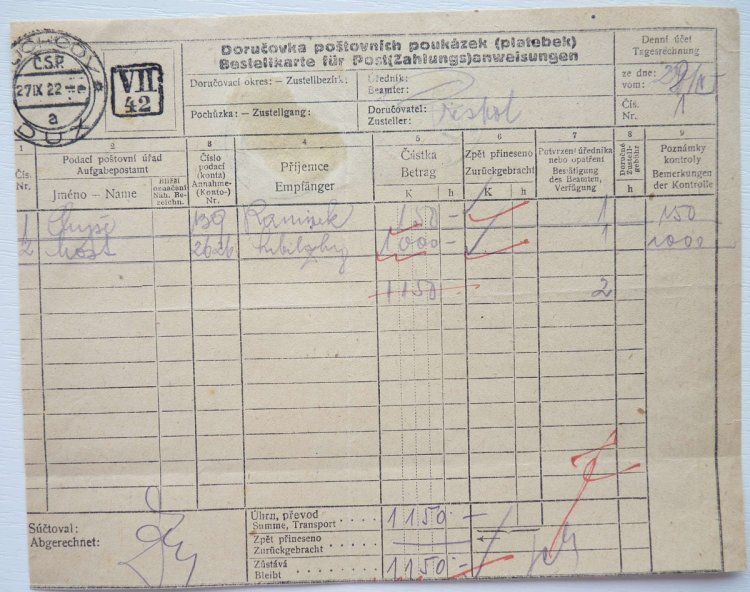 Doručovka poštovních poukázek (platebek)
Bestellkarte für Post(Zahlungs)anweisungen
Denní účet
Tagesrechnung
ČSP.
27 IX 22
a
DUX
VII
42
Doručovací okres: - Zustellbezirk:
Úředník:
Beamter:
ze dne:
vom:
Pochůzka: - Zustellgang:
Doručovatel:
Zusteller:
Čís.
Nr. 1
1 2 3 4 5 6 7 8 9
Čís.
Nr.
Podací poštovní úřad
Aufgabepostamt
Jméno - Name
Bližší
označení
Näh. Be-
zeichn.
Číslo
podací
(konta)
Annahme-
(Konto-)
Nr.
Příjemce
Empfänger
Částka
Betrag
K h
Zpět přineseno
Zurückgebracht
K h
Potvrzení úředníka
nebo opatření
Bestätigung
des Beamten,
Verfügung
Doručné
Zustell-
gebühr
h
Poznámky
kontroly
Bemerkungen
der Kontrolle
1 139 150 - 1 150
2 Most 2626 1000 - 1 1000
1150 2
Súčtoval:
Abgerechnet:
Úhrn, převod
Summe, Transport 1150 -
Zpět přineseno
Zurückgebracht
Zůstává
Bleibt 1150 -